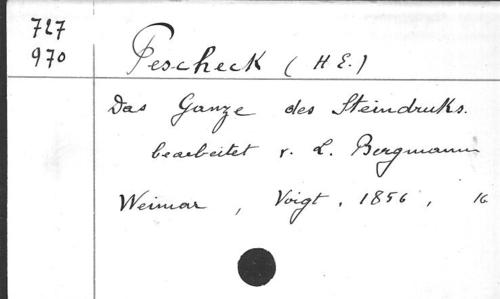 727
970
Pescheck (H E.)
Das Ganze des Steindruks.
bearbeitet v. L. Bergmann
Weimar, Voigt. 1856, 16